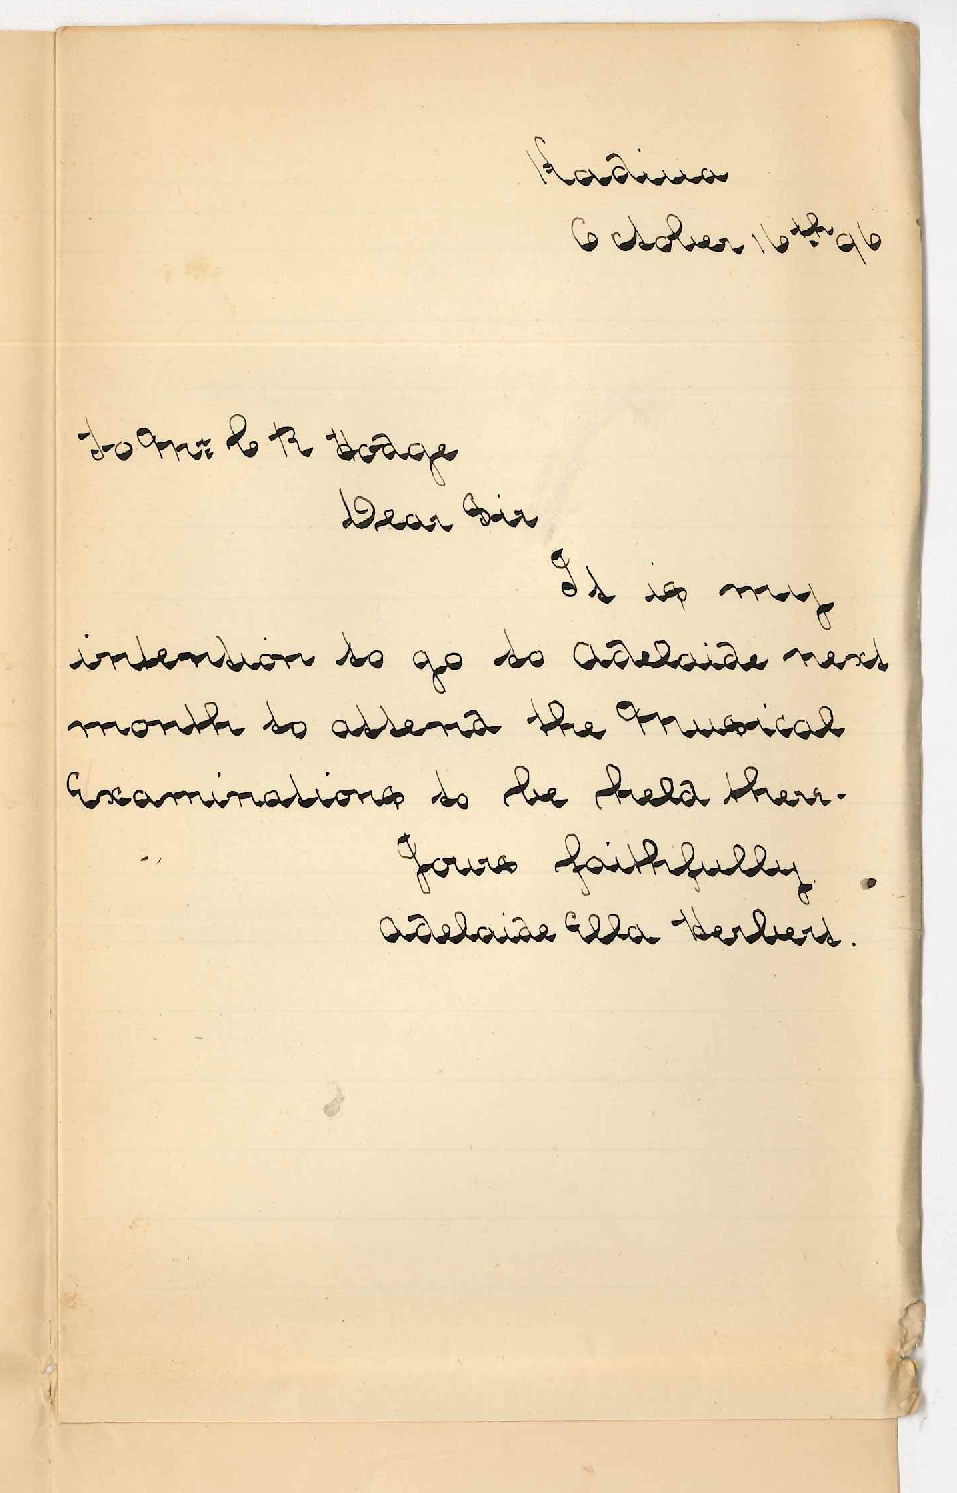 Kadina
October 16th 96
To Mr. C R Hodge
Dear Sir
It is my
intention to go to Adelaide next
month to attend the Musical
Examinations to be held there.
Yours faithfully
Adelaide Ella Herbert.